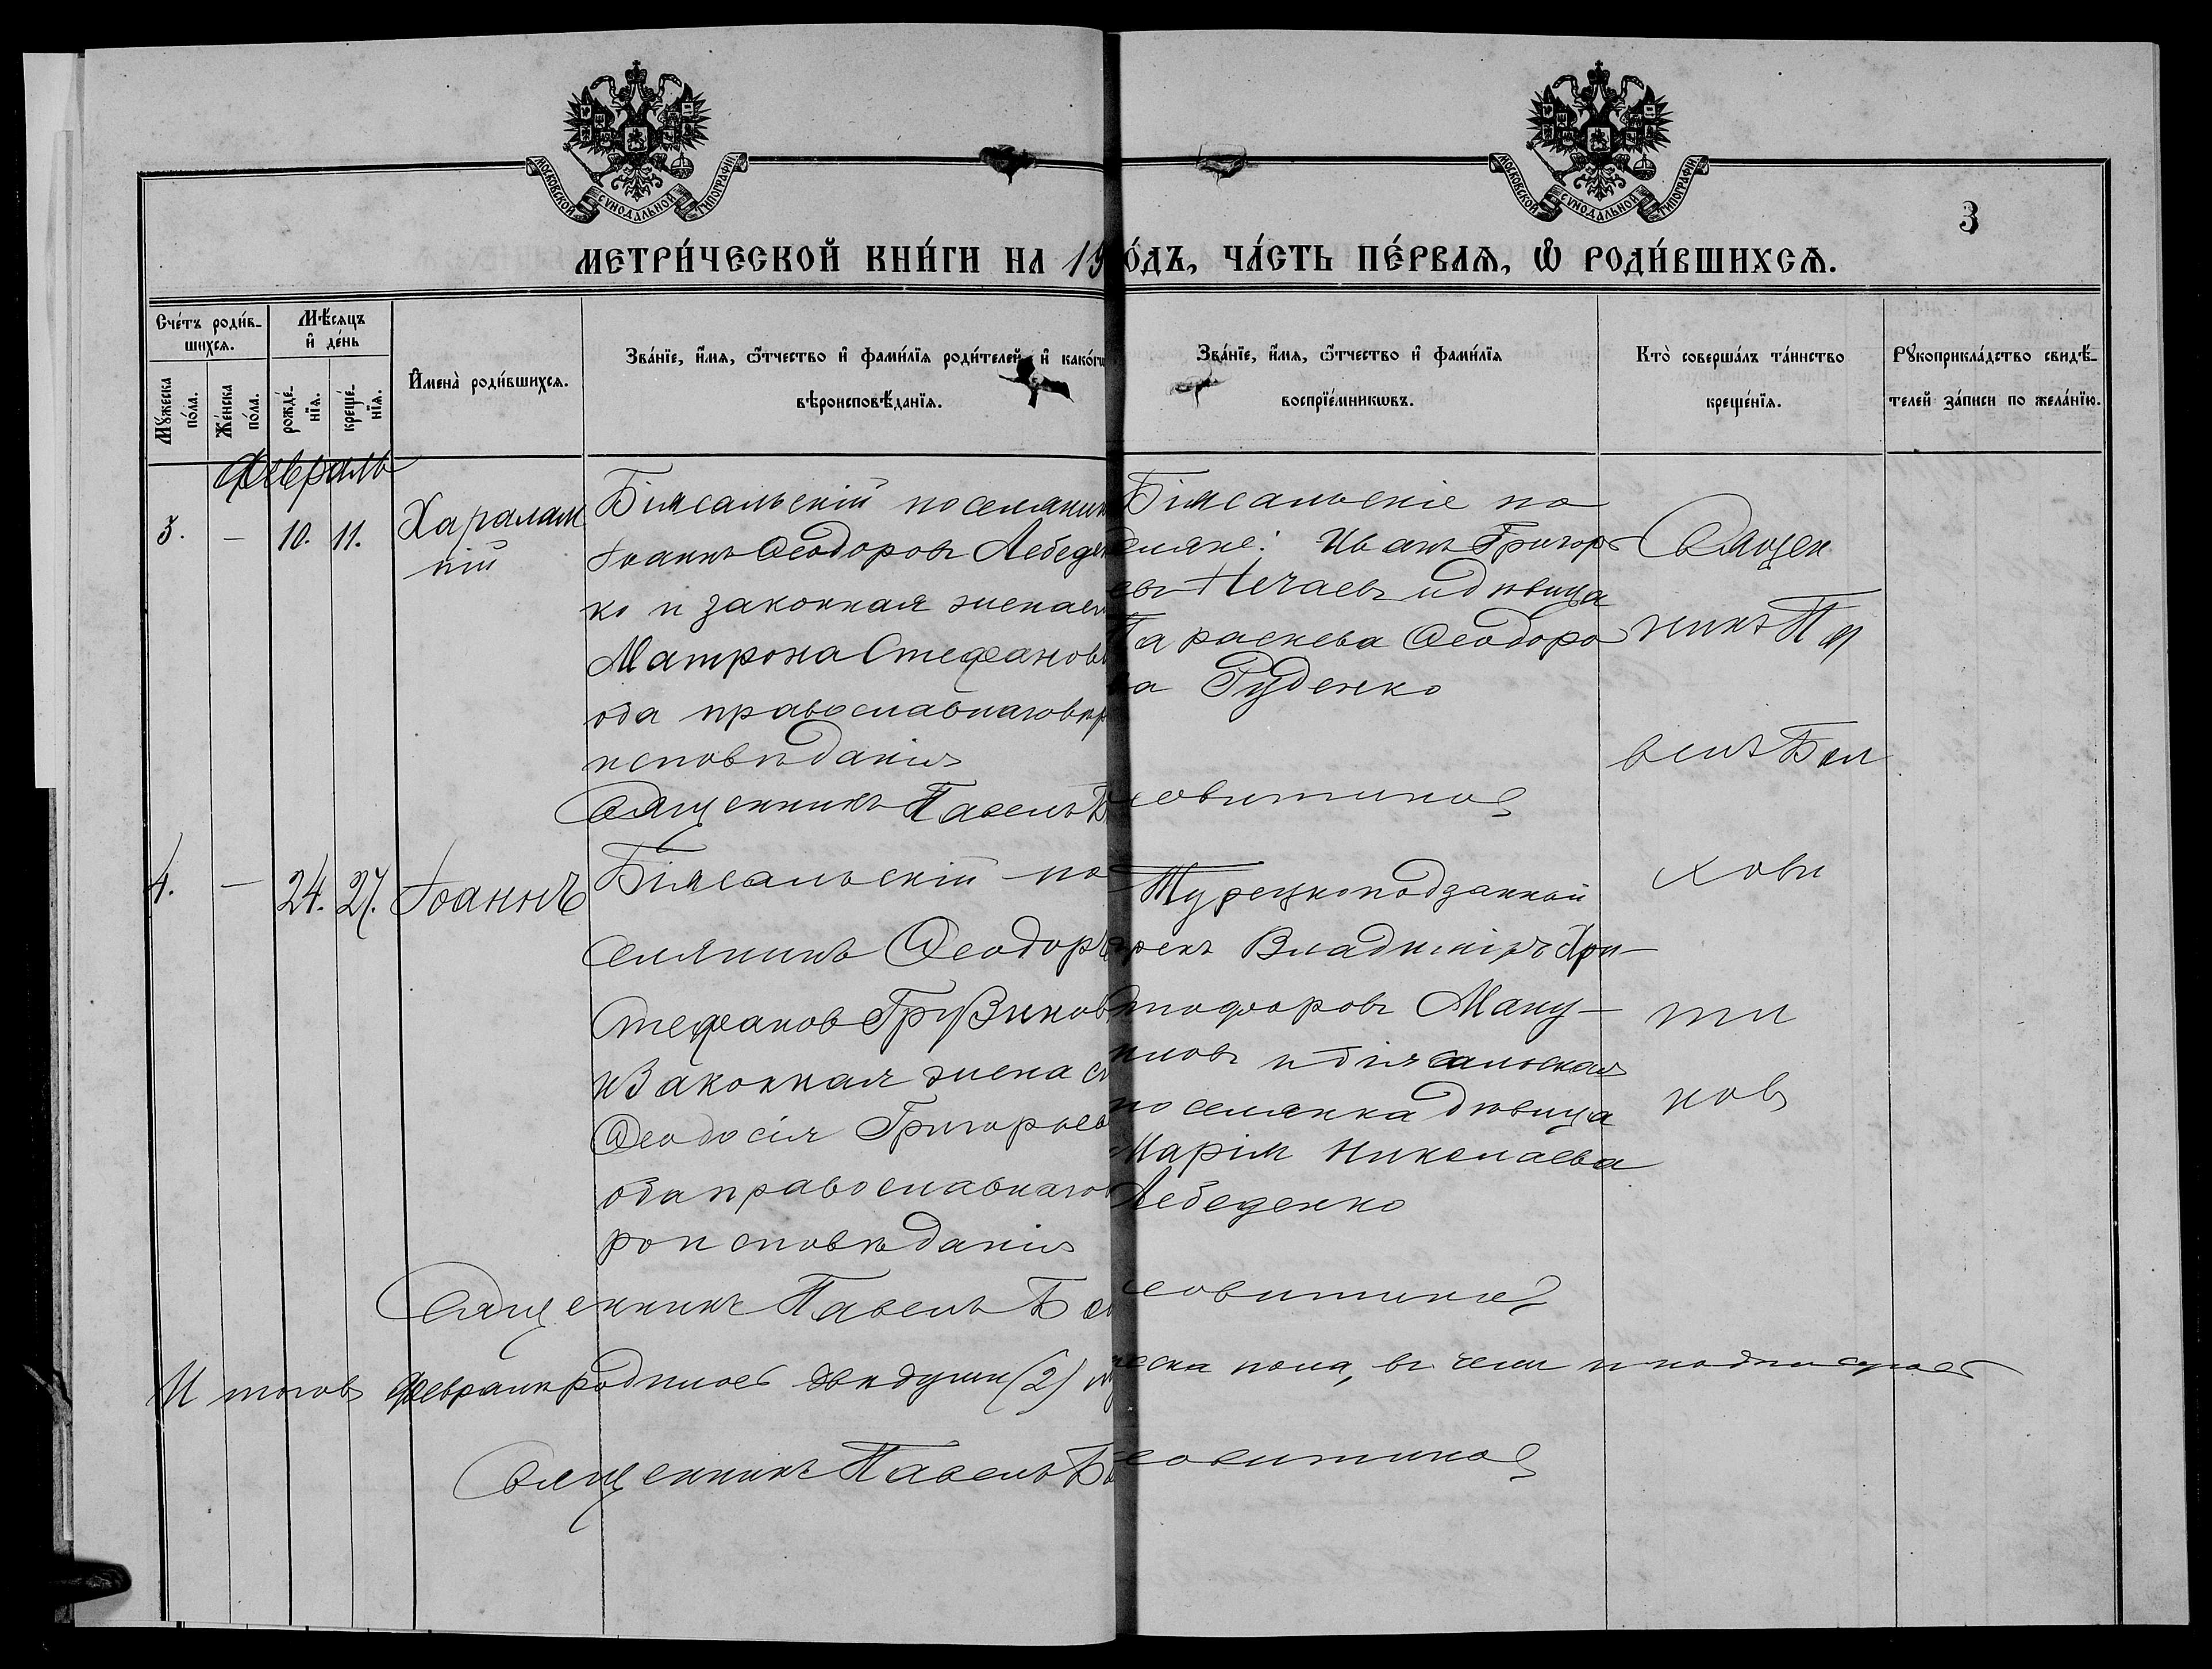 МОСКОВСКОЙ СѴНОДАЛЬНОЙ ТИПОГРАФІИ
МОСКОВСКОЙ СѴНОДАЛЬНОЙ ТИПОГРАФІИ
3
МЕТРИ́ЧЕСКОЙ КНИ́ГИ НА 19
О́ДЪ, ЧА́СТЬ ПЕ́РВАѦ, Ѽ РОДИ́ВШИХСѦ.
Сче́тъ роди́в-
шихсѧ.
Мꙋ́жеска
по́ла.
Же́нска
по́ла.
Мѣ́сѧцъ
и҆ де́нь
рожде́-
нїѧ.
креще́-
нїѧ.
И҆мена̀ роди́вшихсѧ.
Зва́нїе, и҆́мѧ, ѻ҆́тчество и҆ фами́лїѧ роди́телей, и҆ како́гѡ
вѣроисповѣ́данїѧ.
Зва́нїе, и҆́мѧ, ѻ҆́тчество и҆ фами́лїѧ
воспрїе́мникѡвъ.
Кто̀ соверша́лъ та́инство
креще́нїѧ.
Рꙋкоприкла́дство свидѣ́-
телей за́писи по жела́нїю.
Февраль
3.
—
10.
11.
Харалам
пій
Біясальскій поселянин
Іоаннъ Ѳеодоровъ Лебеден
ко и законная жена ег
Матрона Стефановн
оба православнаго вѣр
исповѣданія
Біясальскіе по
селяне: Иванъ Григорь
евъ Нечаевъ и дѣвица
Параскева Ѳеодоро
ва Руденко
Священ
никъ Па
велъ Бѣл
хови
ти
новъ
Священникъ Павелъ Б
ховитиновъ
4.
—
24.
27.
Іоаннъ
Біясальскій по
селянинъ Ѳеодоръ
Стефановъ Грузиновъ
и законная жена ег
Ѳеодосія Григорьев
оба православнаго в
роисповѣданія
Турецкоподданный
грекъ Владиміръ Хри-
стофоровъ Ману-
иловъ и біясальская
поселянка дѣвица
Марія Николаева
Лебеденко
Священникъ Павелъ Бѣл
ховитиновъ
Итого въ Февралѣ родилось двѣ души (2) му
жеска пола, въ чемъ и подписуюсь
Священникъ Павелъ Бѣ
ховитиновъ